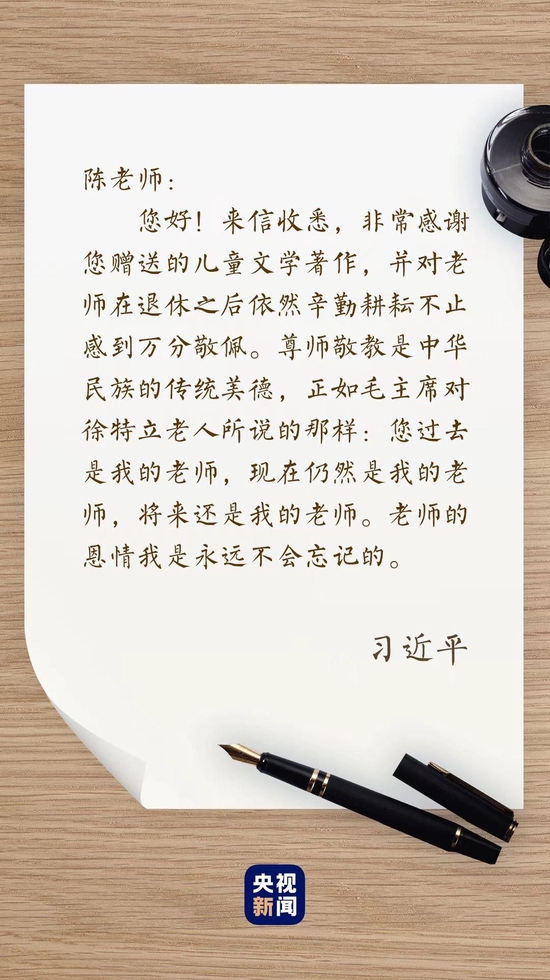 陈老师：
您好！来信收悉，非常感谢
您赠送的儿童文学著作，并对老
师在退休之后依然辛勤耕耘不止
感到万分敬佩。尊师敬教是中华
民族的传统美德，正如毛主席对
徐特立老人所说的那样：您过去
是我的老师，现在仍然是我的老
师，将来还是我的老师。老师的
恩情我是永远不会忘记的。
习近平
央视
新闻